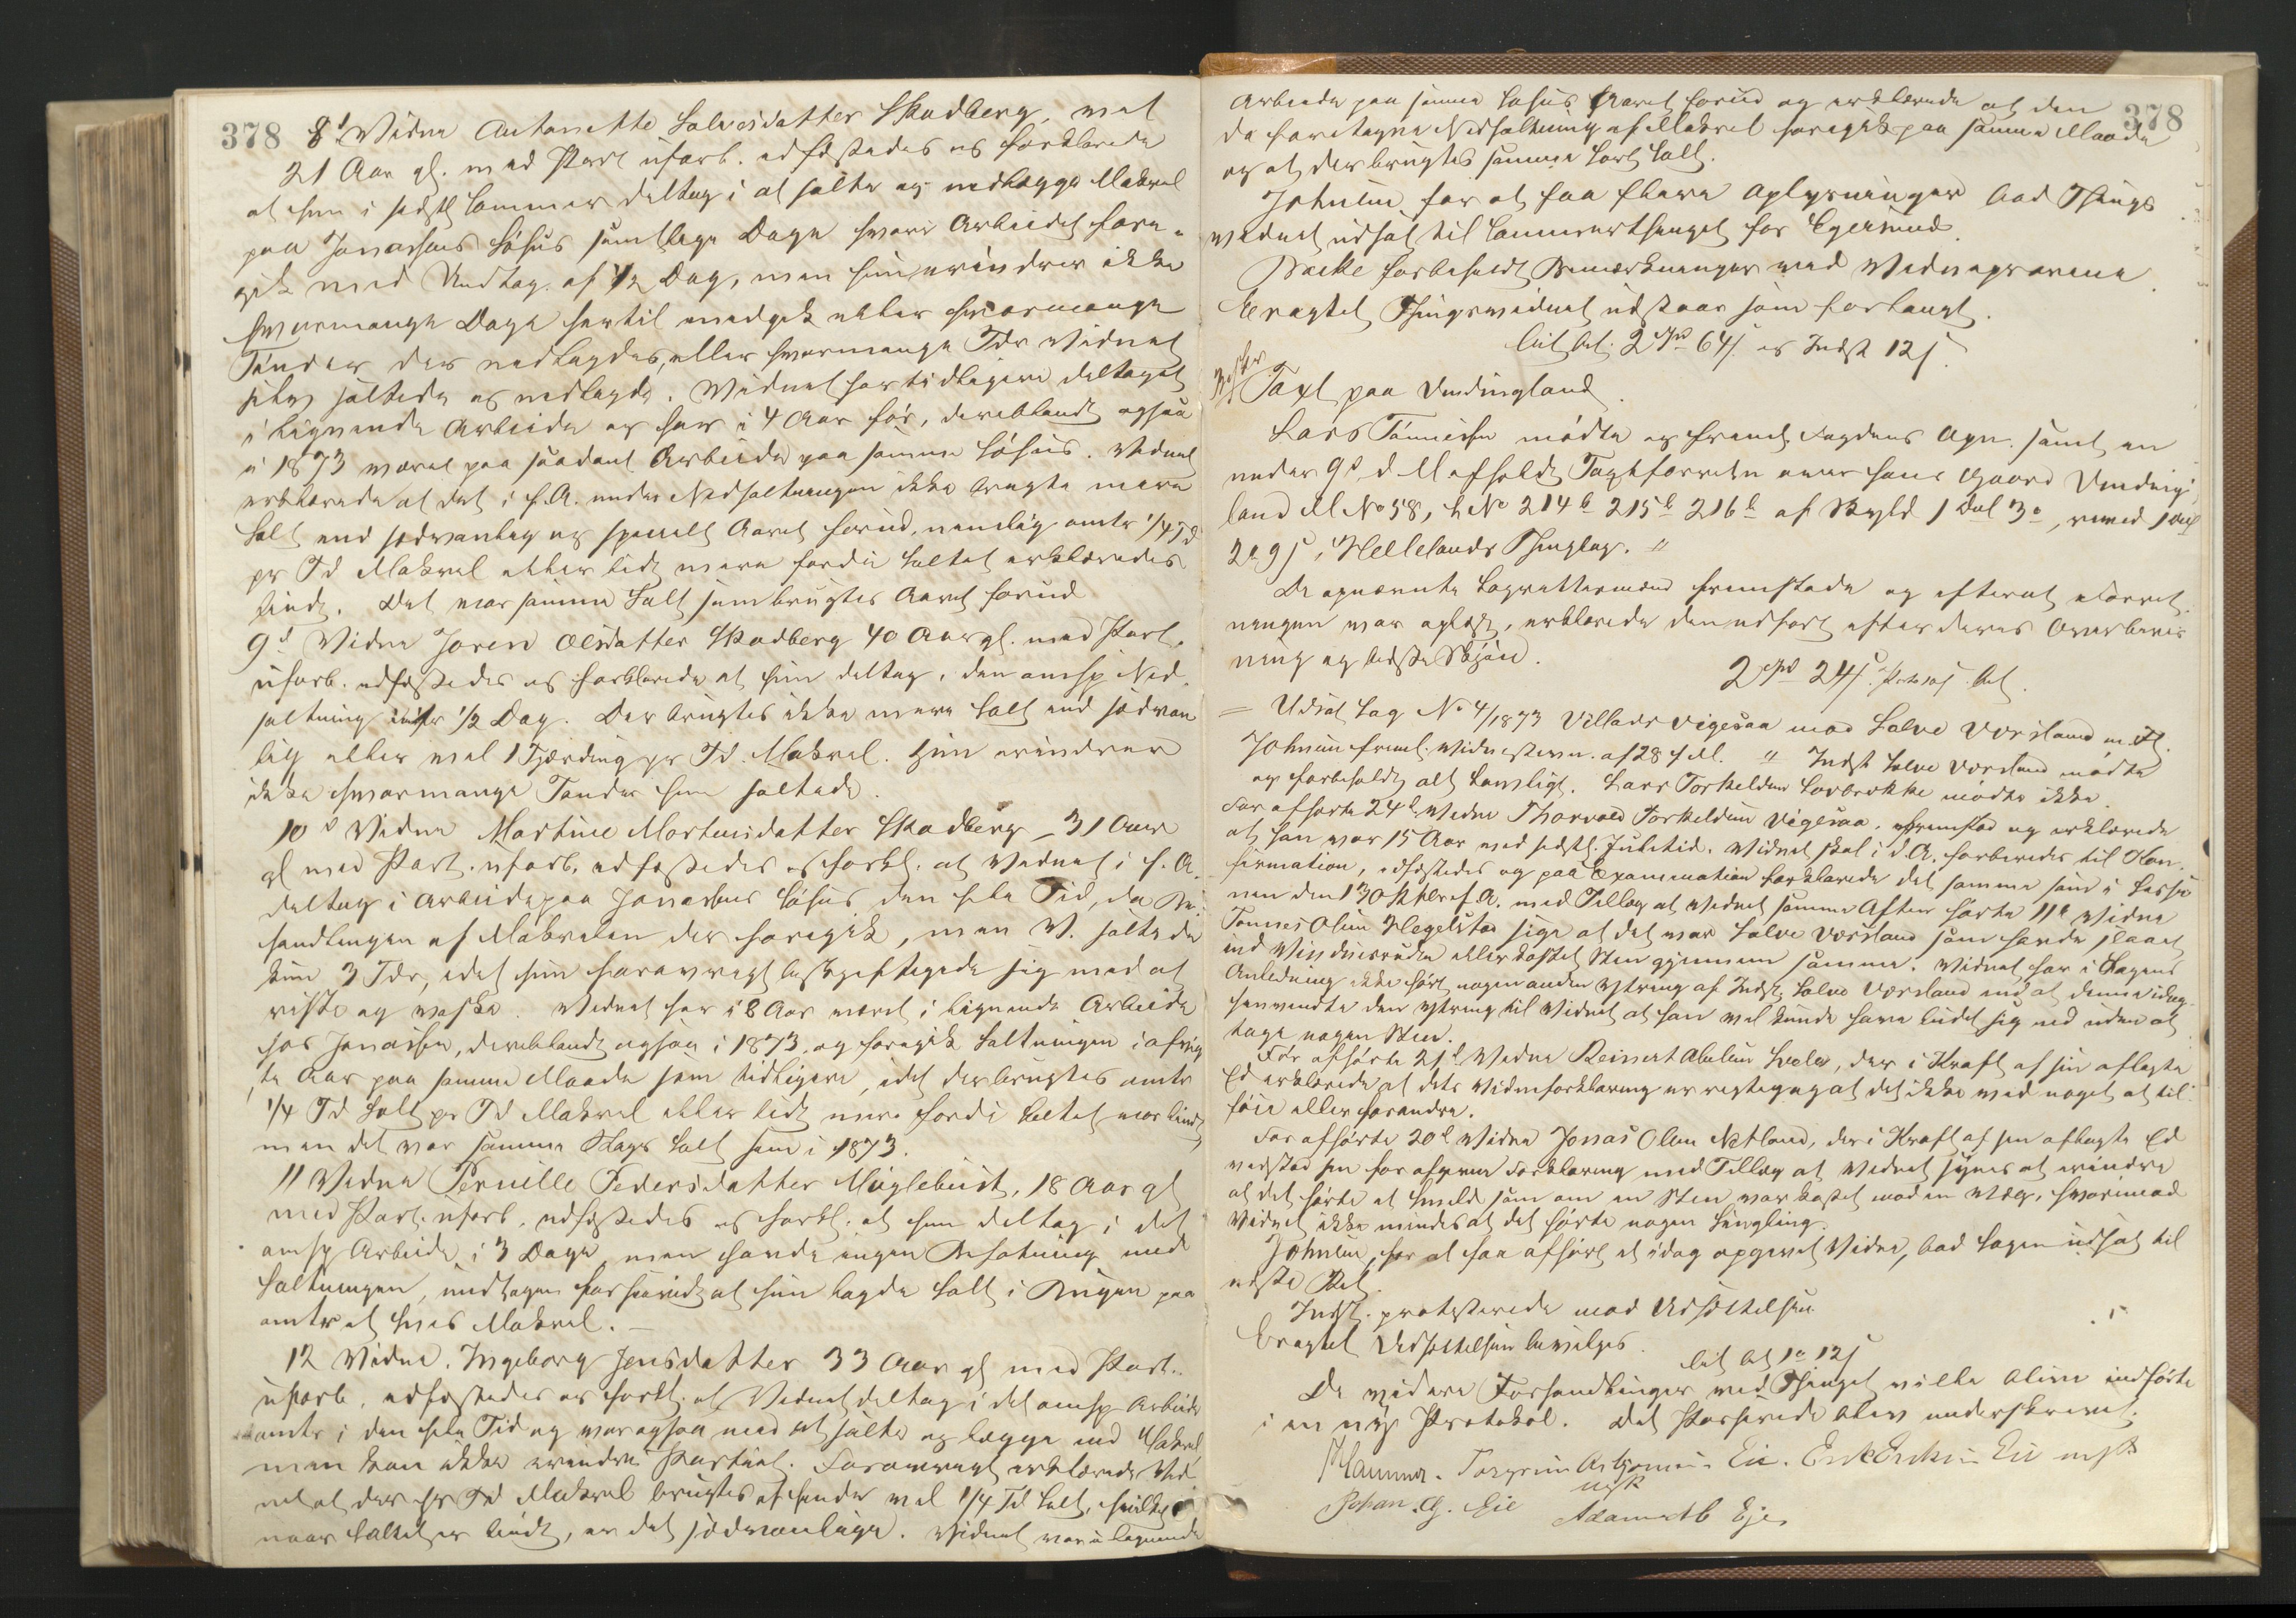 378
8d Vidne Antonette Salvesdatter Skadberg, vel
21 Aar gl. med Part. uforb. edfæstedes og forklarede
at hun i sidste Sommer deltog i at salte og nedlægge Makrel
paa Jonassens Søhus samtlige Dage hvori Arbeidet fore-
gik med Undtag. af 1/2 Dag, men hun erindrer ikke
hvormange Dage hertil medgik eller hvormange
Tønder der nedlagdes, eller hvormange Tdr Vidnet
selv saltede og nedlagde. Vidnet har tidligere deltaget
i lignende Arbeide og har i 4 Aar før, deriblandt ogsaa
i 1873 været paa saadant Arbeide paa samme Søhus. Vidnet
erklærede at det i f. A. under Nedsaltningen ikke brugte mere
Salt end sædvanlig og specielt Aaret forud, nemlig omtr 1/4 Td
pr Td Makrel eller lidt mere fordi Saltet erklæredes
lindt. Det var samme Salt som brugtes Aaret forud
9d Vidne Joren Olsdatter Skadberg 40 Aar gl. med Part.
uforb. edfæstedes og forklarede at hun deltog i den omhp Ned-
saltning i 1/2 Dag. Der brugtes ikke mere Salt end sædvan-
lig eller vel 1 Fjerding pr Td. Makrel. Hun erindrer
ikke hvormange Tønder hun saltede.
10d Vidne Martine Mortensdatter Skadberg, 31 Aar
gl med Part. uforb. edfæstedes og forkl. at Vidnet i f. A.
deltog i Arbeidet paa Jonassens Søhus den hele Tid, da Be-
handlingen af Makrelen der foregik, men V. saltede
kun 3 Tdr, idet hun forøvrigt beskjeftigede sig med at
riste og vaske. Vidnet har i 8 Aar været i lignende Arbeide
hos Jonassen, deriblandt ogsaa i 1873, og foregik Saltningen i afvig-
te Aar paa samme Maade som tidligere, idet der brugtes omtr
1/4 Td Salt pr Td Makrel eller lidt mere fordi Saltet var lindt,
men det var samme Slags Salt som i 1873.
11 Vidne Pernille Pedersdatter Müglebust, 18 Aar gl
med Part. uforb. edfæstedes og forkl. at hun deltog i det
omhp Arbeide i 3 Dage men havde ingen Befatning med
Saltningen, undtagen forsaavidt at hun lagde Salt i Bugen paa
omtr et Hus Makrel. —
12 Vidne. Ingeborg Jensdatter 33 Aar gl med Part.
uforb, edfæstedes og forkl. at Vidnet deltog i det omhp Arbeide
omtr i den hele Tid og var ogsaa med at salte og lægge ned Makrel
men kan ikke erindre Partiet. Forøvrigt erklærede Vid-
net at der pr Td Makrel brugtes vel 1/4 Td Salt, hvilket
naar Saltet er lindt, er det sædvanlige. Vidnet var i lignende
378
Arbeide paa samme Søhus Aaret forud og erklærede at den
da foretagne Nedsaltning af Makrel foregik paa samme Maade
og at der brugtes samme Sort Salt.
Johnsen for at faa flere Oplysninger bad Things-
vidnet udsat til Sommerthinget for Egersund.
Backe forbeholdt Bemærkninger ved Vidneprovene.
Eragtet Thingsvidnet udstaar som forlangt.
2 Spd 64 s. og Indst 12 s
Taxt paa Vindingland.
Lars Tønnesen mødte og freml. Fogdens Opn. samt en
under 9 d. M afholdt Taxtforretn over hans Gaard Vinding-
land M No 58, L No 214b 215b 216b af Skyld 1 Dal 3o, rever 1 Dal
2o 9 s, Hellelands Thinglag. "
De opnævnte Lagrettesmænd fremstode og efterat Forret-
ningen var oplæst, erklærede den udført efter deres Overbevis-
ning og bedste Skjøn.
2 Spd 24 s.
= Udsat Sag No 4/1873 Villads Vigesaa mod Salve Vorsland m. Fl.
Johnsen freml. Vidnestevn. af 28 f. M. " Indst Salve Vorsland mødte
og forbeholdt alt Lovligt. Lars Torkeldsen Lovbrække mødte ikke.
For afhørte 24de Vidne Thorvald Torkeldsen Vigesaa, fremstod og erklærede
at han var 15 Aar ved sidstl. Juletid. Vidnet skal i d. A. forberedes til Kon-
firmation, edfæstedes og paa Examination forklarede det samme som i Sessio-
nen den 13 Oktbr f. A. med Tillæg at Vidnet samme Aften hørte 11te Vidne
Tønnes Olsen Hegelstad sige at det var Salve Vorsland som havde slaaet
ind Vinduesruden eller kastet Sten gjennem samme. Vidnet har i Sagens
Anledning ikke hørt nogen anden Ytring af Indst Salve Vorsland end at denne idag
henvendte den Ytring til Vidnet at han vel kunde have budet sig ned uden at
tage nogen Sten.
Før afhørte 21de Vidne Reinert Abelsen Svela, der i Kraft af sin aflagte
Ed erklærede at dets Vidneforklaring er rigtig og at det ikke ved noget at til-
føie eller forandre.
Før afhørte 20de Vidne Jonas Olsen Netland, der i Kraft af sin aflagte Ed
vedstod sin før afgivne Forklaring med Tillæg at Vidnet synes at erindre
at det hørte et Smeld som om en Sten var kastet mod en Væg, hvorimod
Vidnet ikke mindes at det hørte nogen Singling.
Johnsen, for at faa afhørt et idag opgivet Vidne, bad Sagen udsat til
næste Ret.
Indst. protesterede mod Udsættelsen
Eragtet Udsættelsen bevilges.
1o 12 s
De videre Forhandlinger ved Thinget ville blive indførte
i en ny Protokol. Det Passerede blev underskrevet.
Hammer. Torgrim Asbjørnsen Eie. Erik Eriksen Eie mfP
mfP
Johan. G. Eie Adam Eje